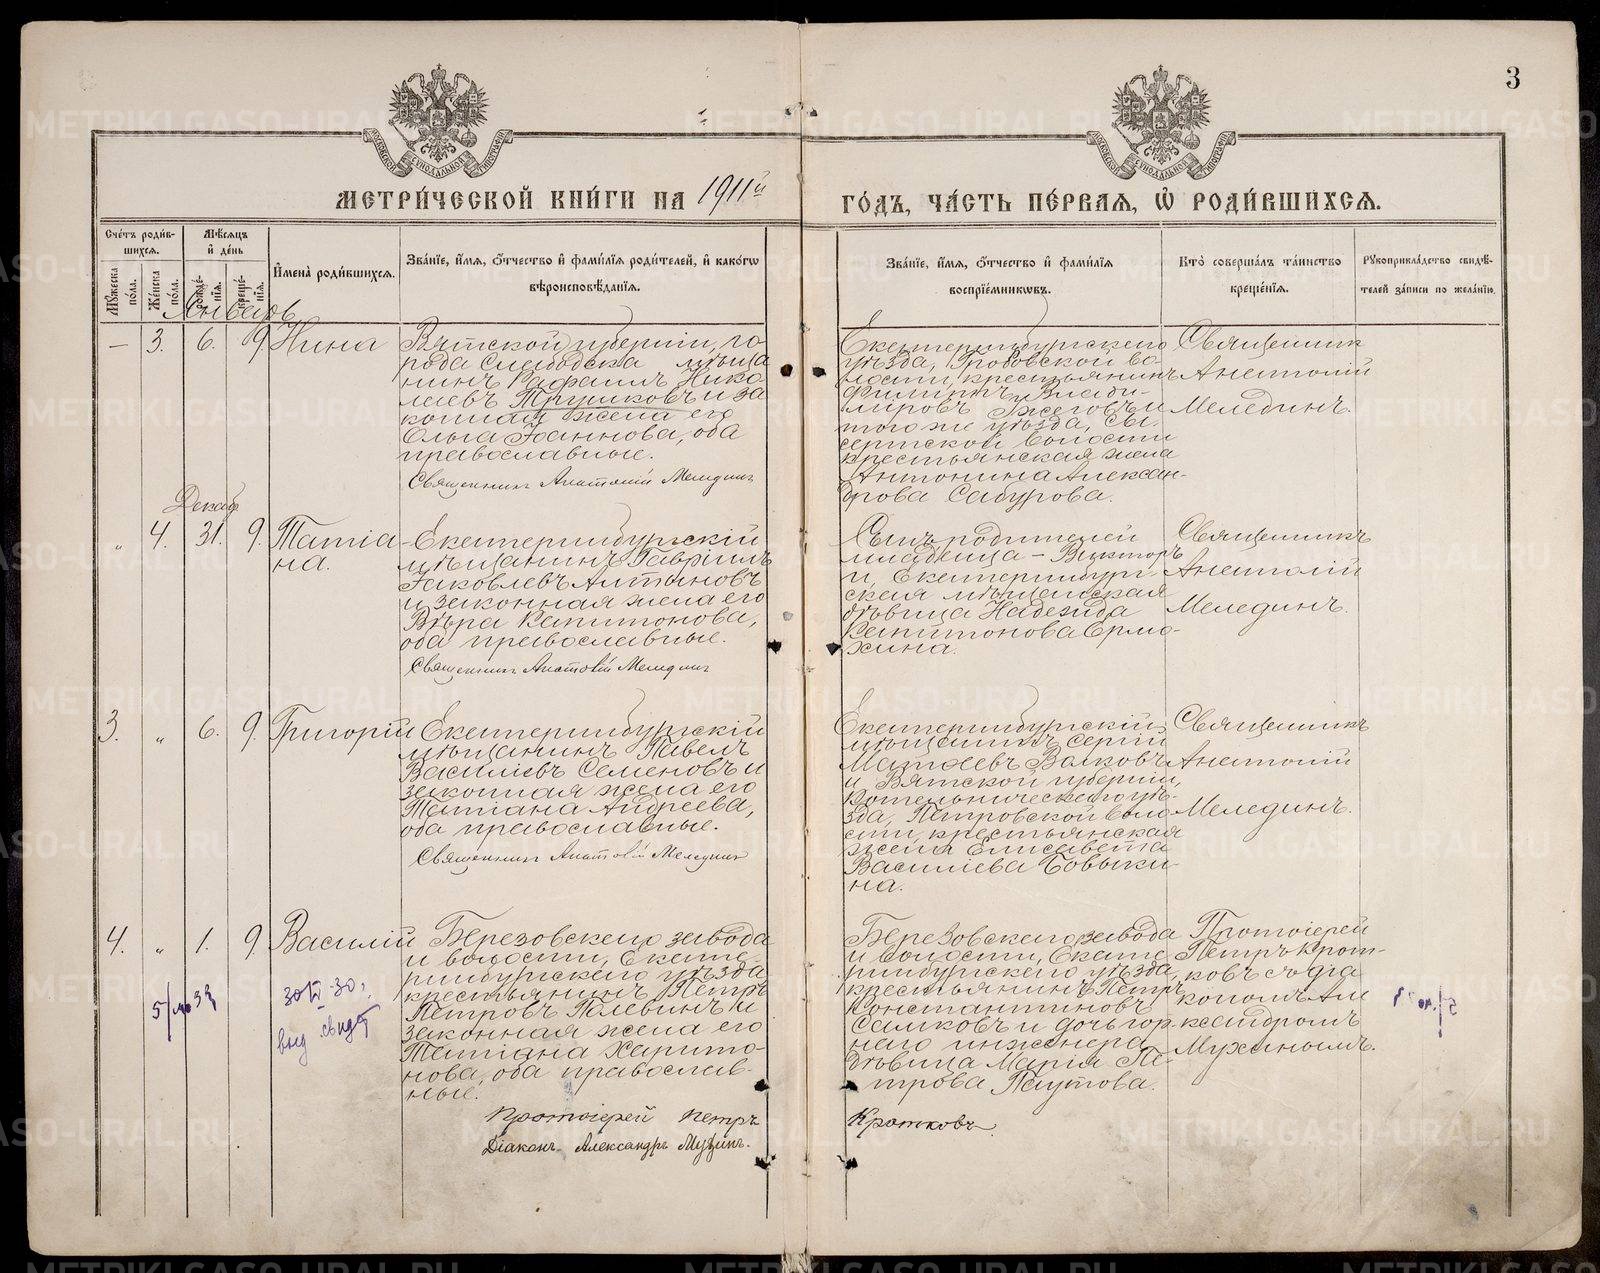 3
МОСКОВСКОЙ СѴНОДАЛЬНОЙ ТИПОГРАФІИ
МОСКОВСКОЙ СѴНОДАЛЬНОЙ ТИПОГРАФІИ
МЕТРИ́ЧЕСКОЙ КНИ́ГИ НА 1911й
ГО́ДЪ, ЧА́СТЬ ПЕ́РВАЯ, Ѡ҆ РОДИ́ВШИХСЯ.
Сче́тъ роди́в-
шихся.
Мѣ́сяцъ
и҆ де́нь
Мꙋ́жеска
по́ла.
Же́нска
по́ла.
рожде́-
нїя.
креще́-
нїя.
И҆мена̀ роди́вшихся.
Зва́нїе, и҆́мя, ѻ҆́тчество и҆ фами́лїя роди́телей, и҆ како́гѡ
вѣроисповѣ́данїя.
Зва́нїе, и҆́мя, ѻ҆́тчество и҆ фами́лїя
воспрїе́мникѡвъ.
Кто̀ соверша́лъ та́инство
креще́нїя.
Рꙋкоприкла́дство свидѣ́-
телей за́писи по жела́нїю.
Январь
— 3. 6. 9. Нина
Вятской губерніи, го-
рода Слободска мѣща
нинъ Рафаилъ Нико-
лаевъ Трушковъ и за
конная жена его
Ольга Іоаннова, оба
православные.
Священникъ Анатолій Мелединъ
Екатеринбургскаго
уѣзда, Гробовской во-
лости, крестьянинъ
Филиппъ Влади-
міровъ Жеговъ и
того же уѣзда, Сы-
сертской волости
крестьянская жена
Антонина Алексан-
дрова Сабурова.
Священникъ
Анатолій
Мелединъ.
Декабр
„ 4. 31. 9. Татіа-
на.
Екатеринбургскій
мѣщанинъ Гавріилъ
Іаковлевъ Алтыновъ
и законная жена его
Вѣра Капитонова,
оба православные.
Священникъ Анатолій Мелединъ
Сынъ родителей
младенца – Викторъ
и, Екатеринбург-
ская мѣщанская
дѣвица Надежда
Капитонова Ермо-
хина.
Священникъ
Анатолій
Мелединъ.
3. „ 6. 9. Григорій
Екатеринбургскій
мѣщанинъ Павелъ
Василіевъ Семеновъ и
законная жена его
Татіана Андреева,
оба православные.
Священникъ Анатолій Мелединъ
Екатеринбургскій
мѣщанинъ Сергій
Матѳеевъ Волковъ
и Вятской губерніи,
Котельническаго уѣ-
зда, Петровской воло
сти, крестьянская
жена Елисавета
Василіева Бовыки-
на.
Священникъ
Анатолій
Мелединъ.
4. „ 1. 9. Василій
Березовскаго завода
и волости, Екате-
ринбургскаго уѣзда
крестьянинъ Петръ
Петровъ Полевинъ и
законная жена его
Татіана Харито-
нова, оба православ-
ные.
Протоіерей Петръ
Діаконъ Александръ Мухинъ.
Березовскаго завода
и волости, Екате
ринбургскаго уѣзда,
крестьянинъ Петръ
Константиновъ
Самковъ и дочь гор-
наго инженера
дѣвица Марія Пе-
трова Паутова.
Кротковъ
Протоіерей
Петръ Крот-
ковъ съ діа
кономъ Але
ксандромъ
Мухинымъ.